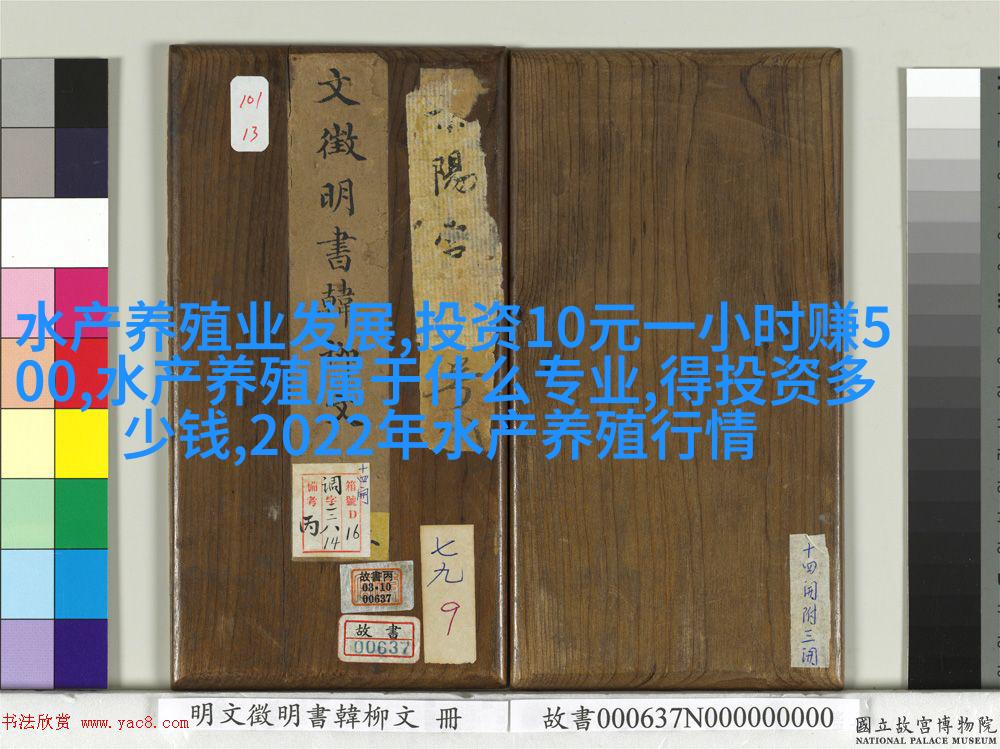 水产养殖业发展,投资10元一小时赚5
00,水产养殖属于什么专业,得投资多
少钱,2022年水产养殖行情
101
13
文徵明書韓柳文
陽宮
十四開
箱號D16
調字三八14
備考丙
故書丙
03·10
00637
故書
00637
七九
9
十四開附三開
明文徵明書韓柳文 冊
故書000637N000000000
書法欣赏 www.yac8.com
國立故宮博物院
NATIONAL PALACE MUSEUM